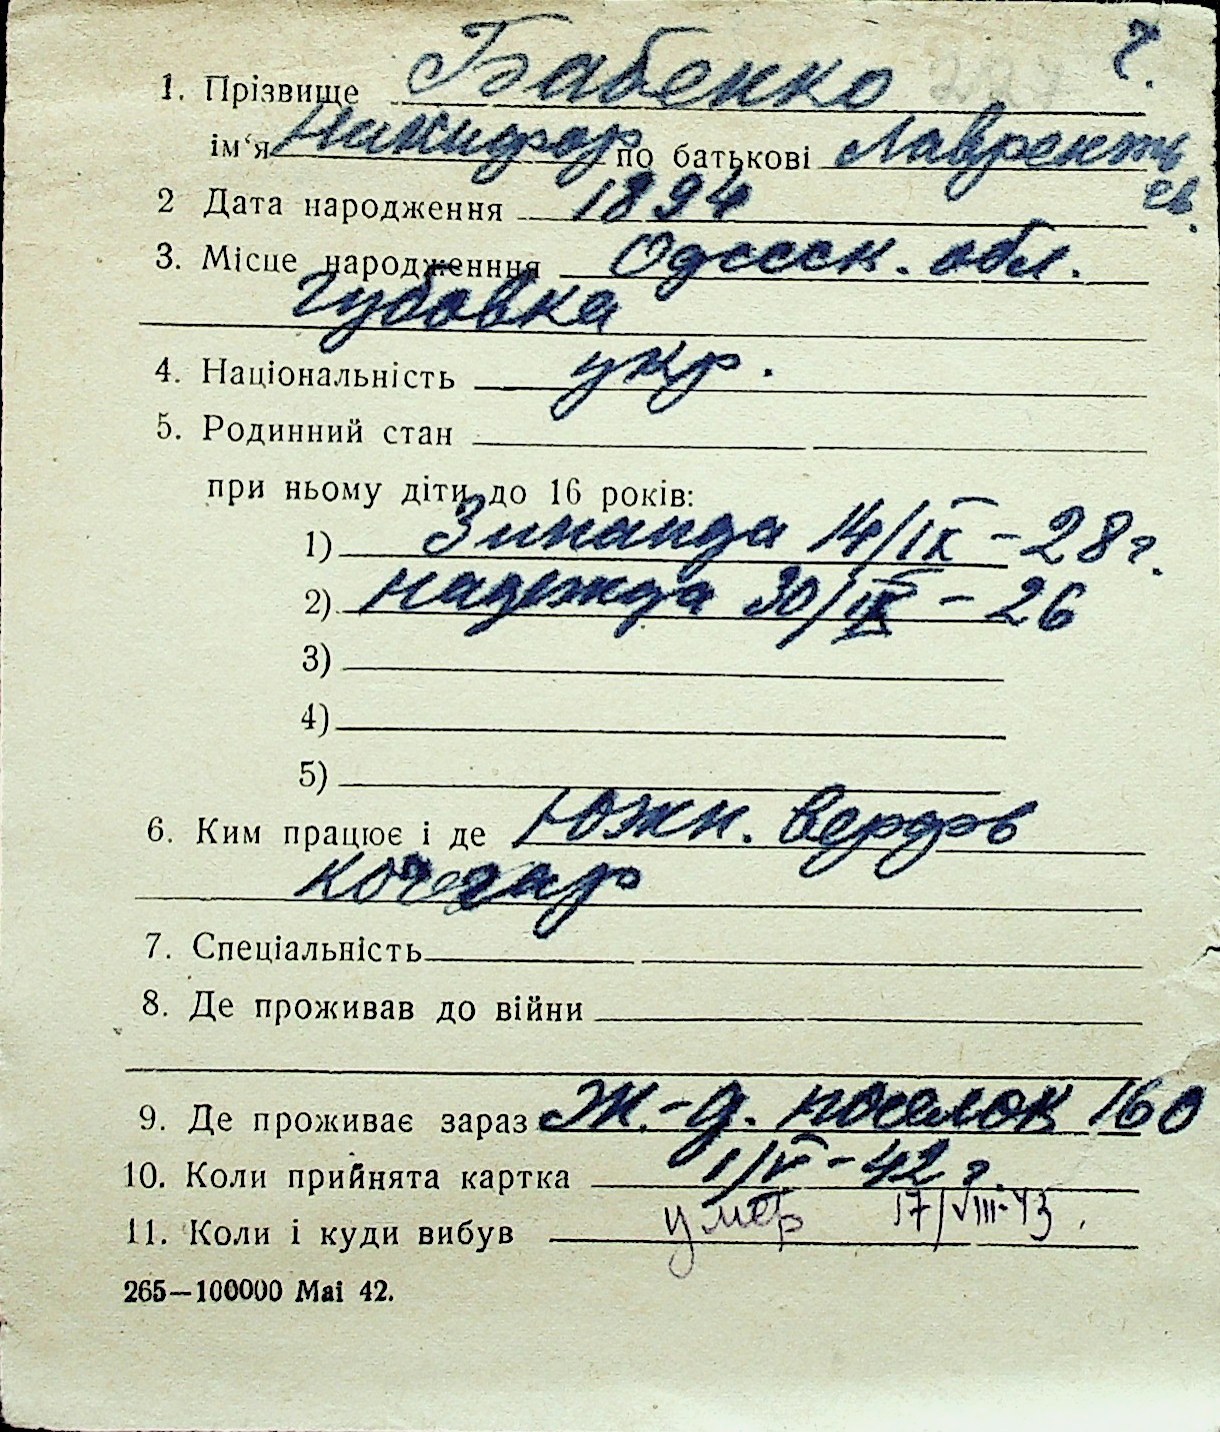 ч.
1. Прізвище Бабенко
ім‘я Никифор по батькові Лаврентьев.
2 Дата народження 1894
3. Місце народженння Одесск. обл.
Губовка
4. Національність укр.
5. Родинний стан
при ньому діти до 16 років:
1) Зинаида 14/IX - 28 г.
2) Надежда 30/IX - 26
3)
4)
5)
6. Ким працює і де Южн. верфь
кочегар
7. Спеціальність
8. Де проживав до війни
9. Де проживає зараз Ж.-д. поселок 160
10. Коли прийнята картка 1/V - 42 г.
11. Коли і куди вибув умер 17/VIII-43.
265—100000 Mai 42.